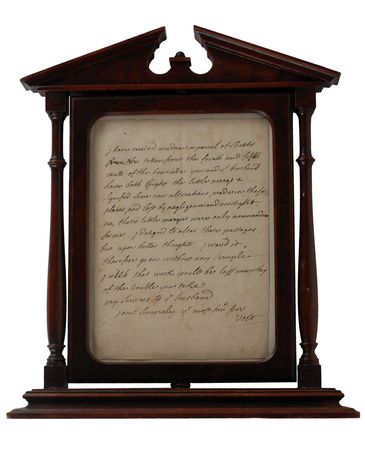 I have receivd madam a parcel of sheets
taken from the fourth and fifth
canto of the henriade. you and y^r husband
have both fought the little
signified some new alterations, made in these
places and left by negligence and oversight
on these little marges were only memorandum
forme. I designd to alter these passages
but upon better thoughts I wav'd it
therefore go on without any scruple
I wish that work would be less unworthy
of the trouble you take
my services to y^r husband
I am sincerely y^r most hum serv
Volt